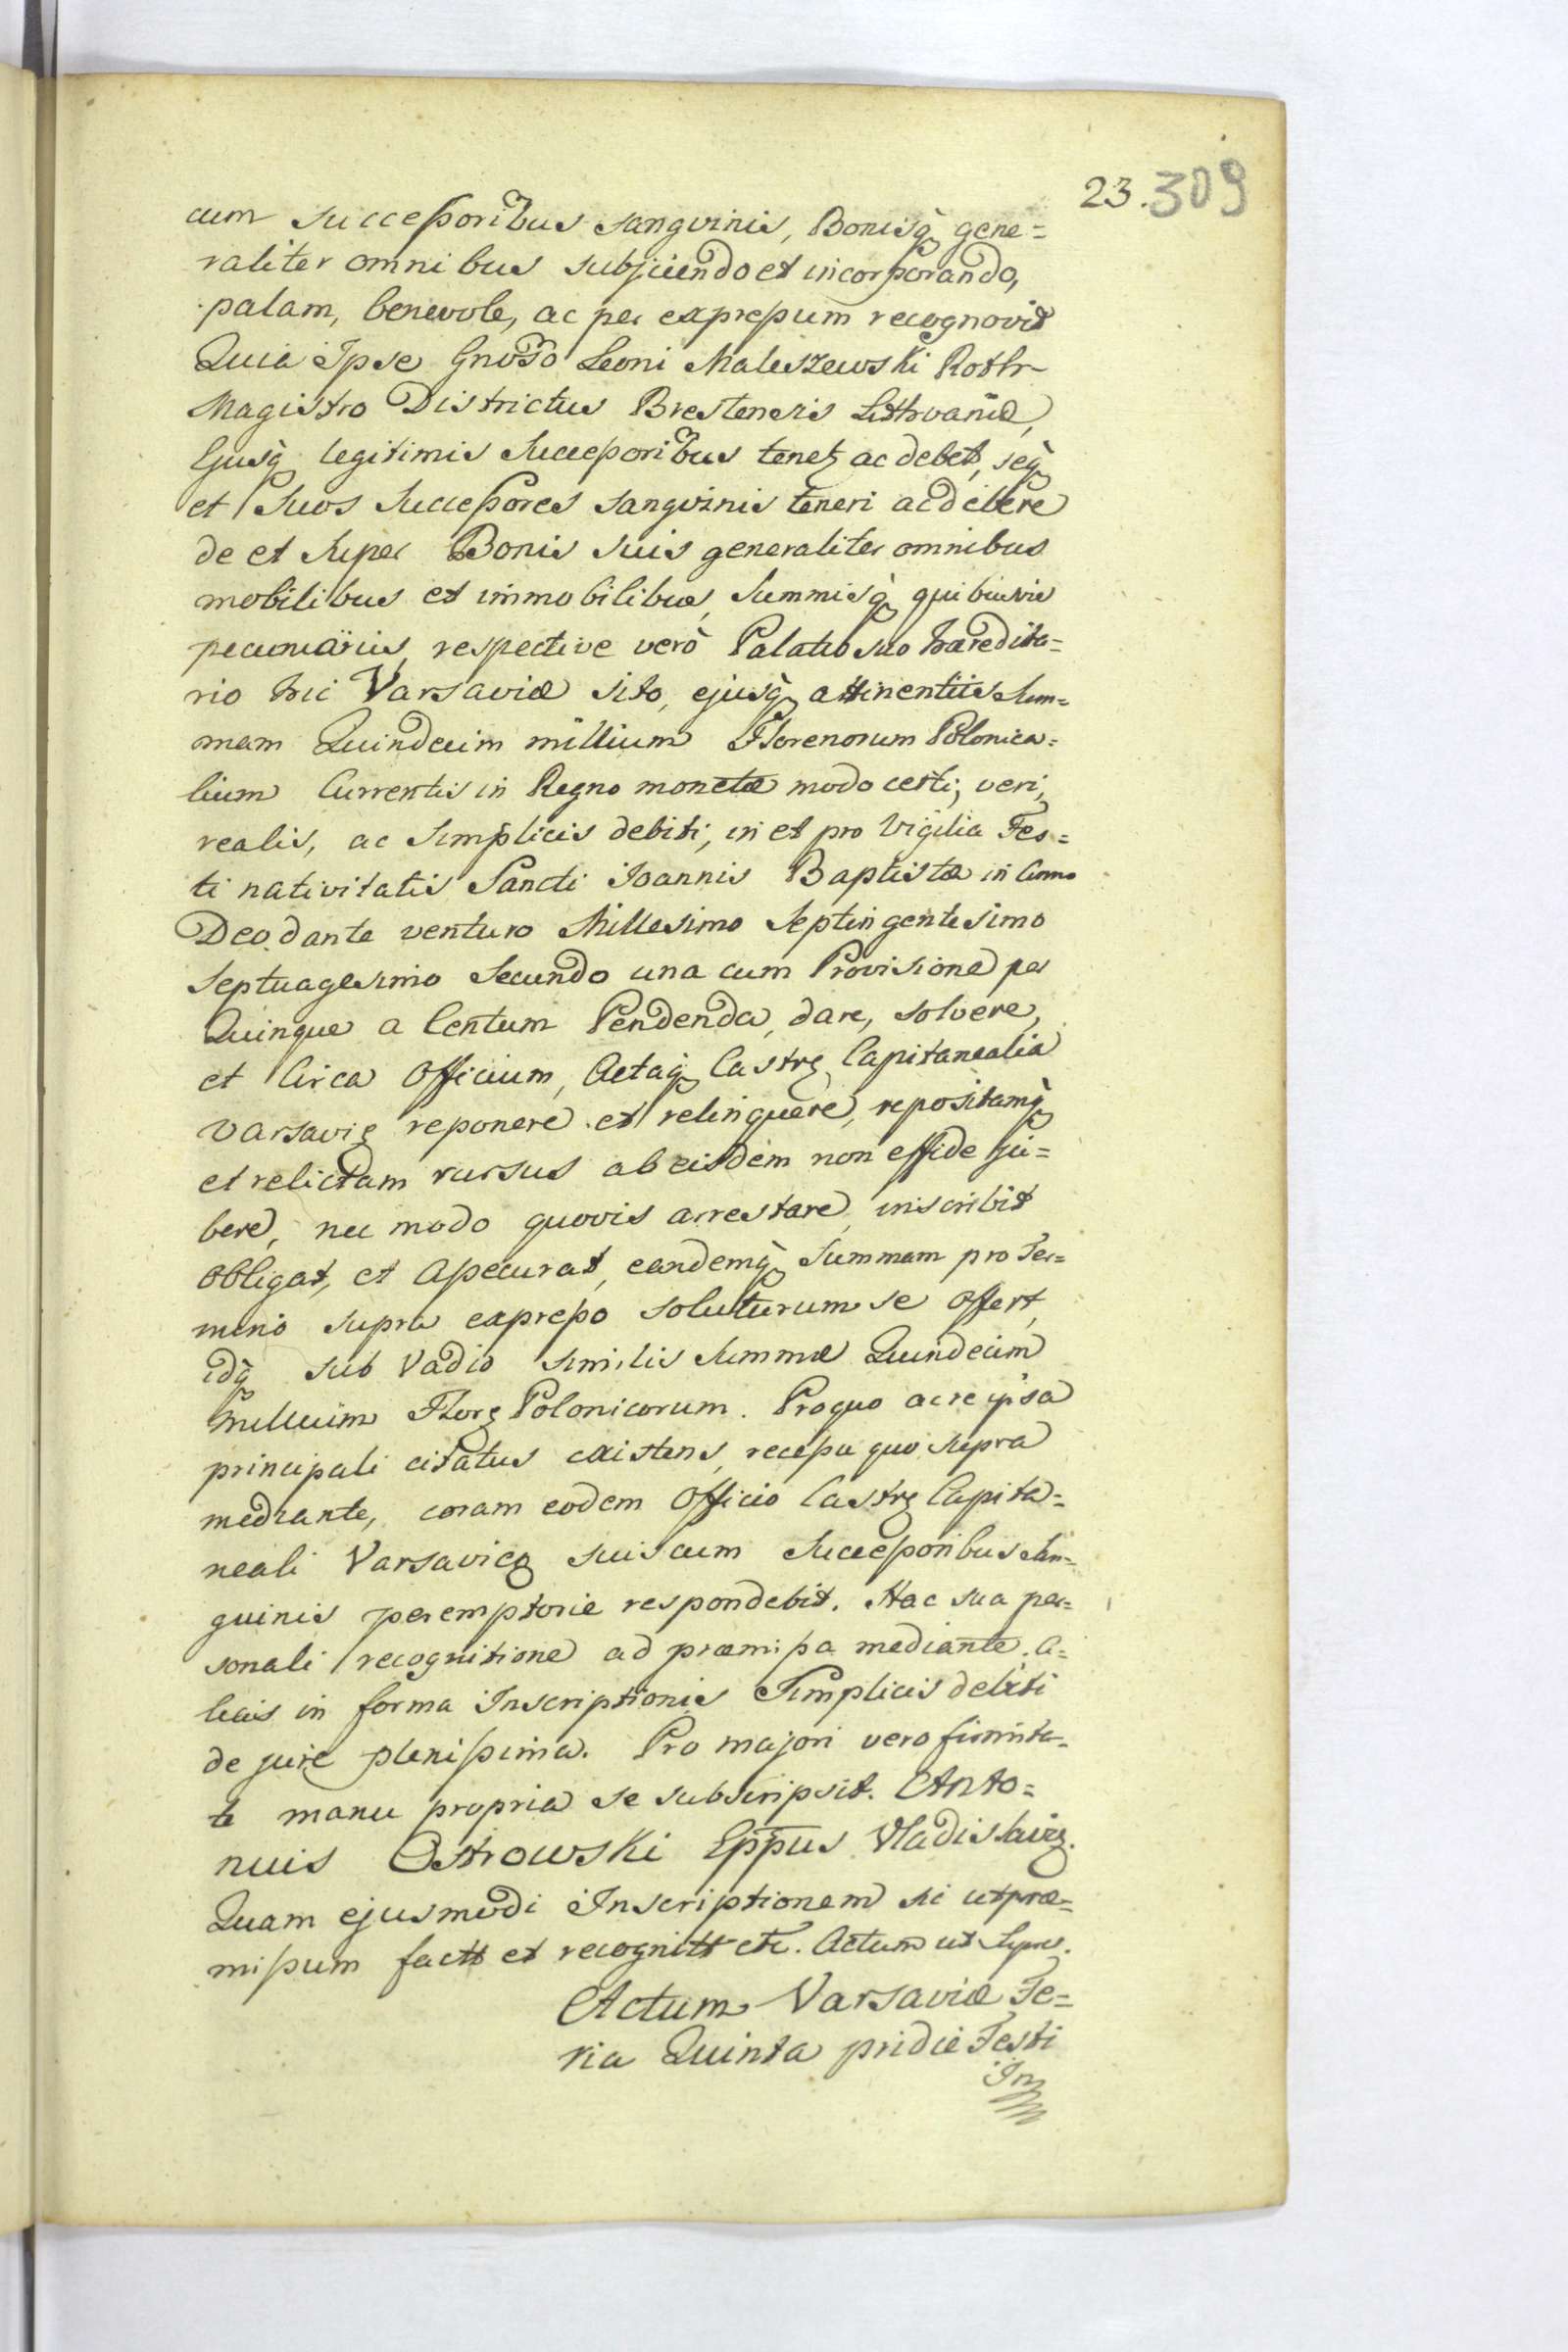 23. 309
cum Successoribus sangvinis, Bonisq̀ꝫ gene=
raliter omnibus subjiciendo et incorporando,
palam, benevole, ac per expressum recognovit
Quia Ipse Gnoso Leoni Maleszewski Rothr
Magistro Districtus Brestensis Lithvaniæ,
Ejusq̀ꝫ legitimis Successoribus tenetꝫ ac debet, seq̀ꝫ
et Suos Successores sangvinis teneri ac debere
de et Super Bonis suis generaliter omnibus
mobilibus et immobilibus, Summisq̀ꝫ quibusvis
pecuniariis, respective verò Palatio suo hæredita=
rio hic Varsaviæ sito, ejusq̀ꝫ attinentiis Sum=
mam Quindecim millium Florenorum Polonica=
lium Currentis in Regno monetæ modo certi, veri,
realis, ac Simplicis debiti, in et pro Vigilia Fes=
ti nativitatis Sancti Ioannis Baptistæ in Anno
Deo dante venturo Millesimo Septingentesimo
Septuagesimo Secundo una cum Provisione per
Quinque a Centum Pendenda, dare, solvere,
et Circa Officium, Actaq̀ꝫ Castrꝫ Capitanealia
Varsavieꝫ reponere et relinquere, repositamq̀ꝫ
et relictam rursus ab eisdem non effide Jui=
bere, nec modo quovis arrestare, inscribit
obligat, et assecurat, eandemq̀ꝫ Summam pro Ter=
mino supra expresso soluturum se offert,
idq̀ꝫ sub Vadio similis Summæ Quindecim
millium Florꝫ Polonicorum. Pro quo ac re ipsa
principali citatus existens, recessu quo supra
mediante, coram eodem Officio Castrꝫ Capita=
neali Varsavieꝫ suis cum Successoribus San=
guinis peremptorie respondebit. Hac sua per=
sonali recognitione ad præmissa mediante. A=
liais in forma Inscriptionis Simplicis debiti
de jure plenissima. Pro majori vero firmita=
te manu propria se subscripsit. Anto=
nius Ostrowski Eppus Vladislavieꝫ.
Quam ejusmodi Inscriptionem sic ut præ=
missum factt et recognitt etc. Actum ut Supra.
Actum Varsaviæ Fe=
ria Quinta pridie Festi
In